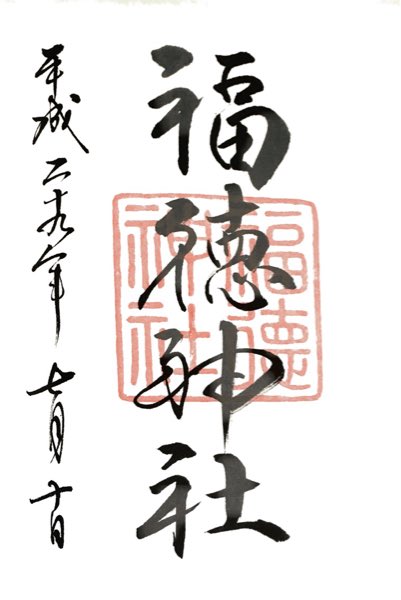 福徳神社
福德
神社
平成二十九年七月十日